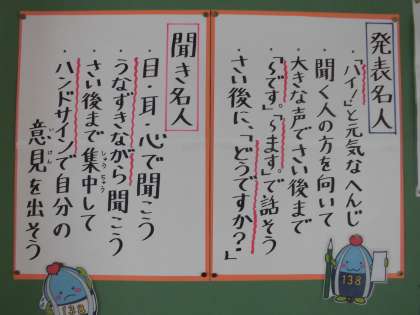 発表名人
・「ハイ！」と元気なへんじ
・聞く人の方を向いて
・大きな声でさい後まで
・「らです。」「ろます。」で話そう
・さい後に、「どうですか？」
聞き名人
・目・耳・心で聞こう
・うなずきながら聞こう
・さい後まで集中して
しゅうちゅう
・ハンドサインで自分の
意見を出そう
いけん
138
138